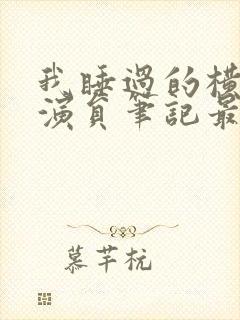 我睡過的橫
演員筆記最
慕芊杭